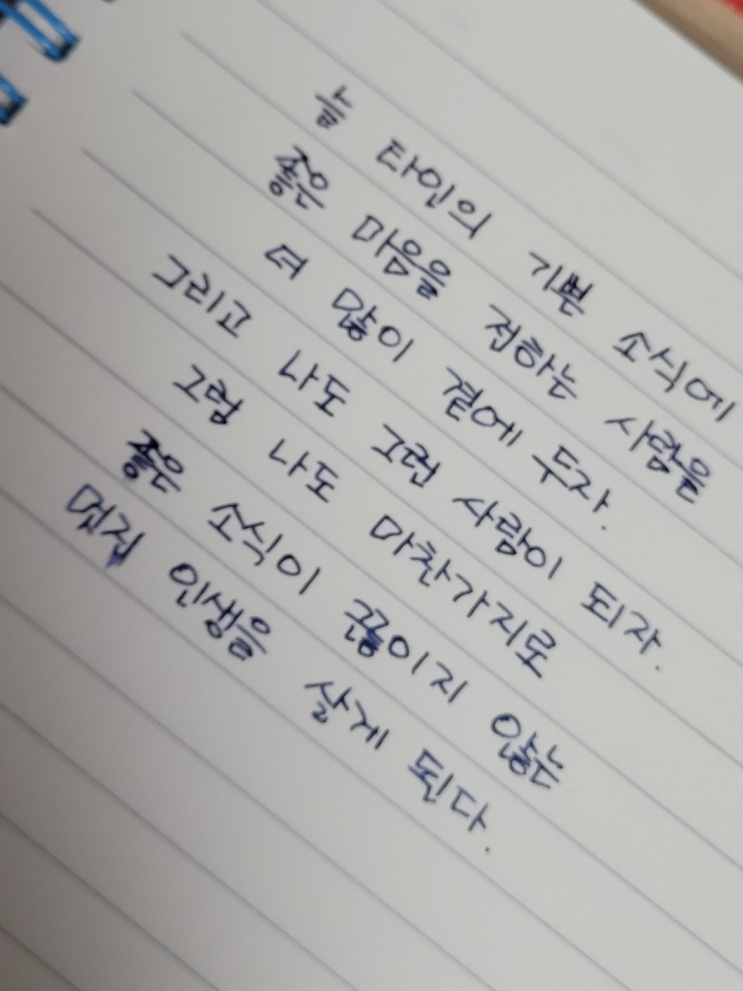 늘 타인의 기쁜 소식에
좋은 마음을 전하는 사람을
더 많이 곁에 두자.
그리고 나도 그런 사람이 되자.
그럼 나도 마찬가지로
좋은 소식이 끊이지 않는
멋진 인생을 살게 된다.